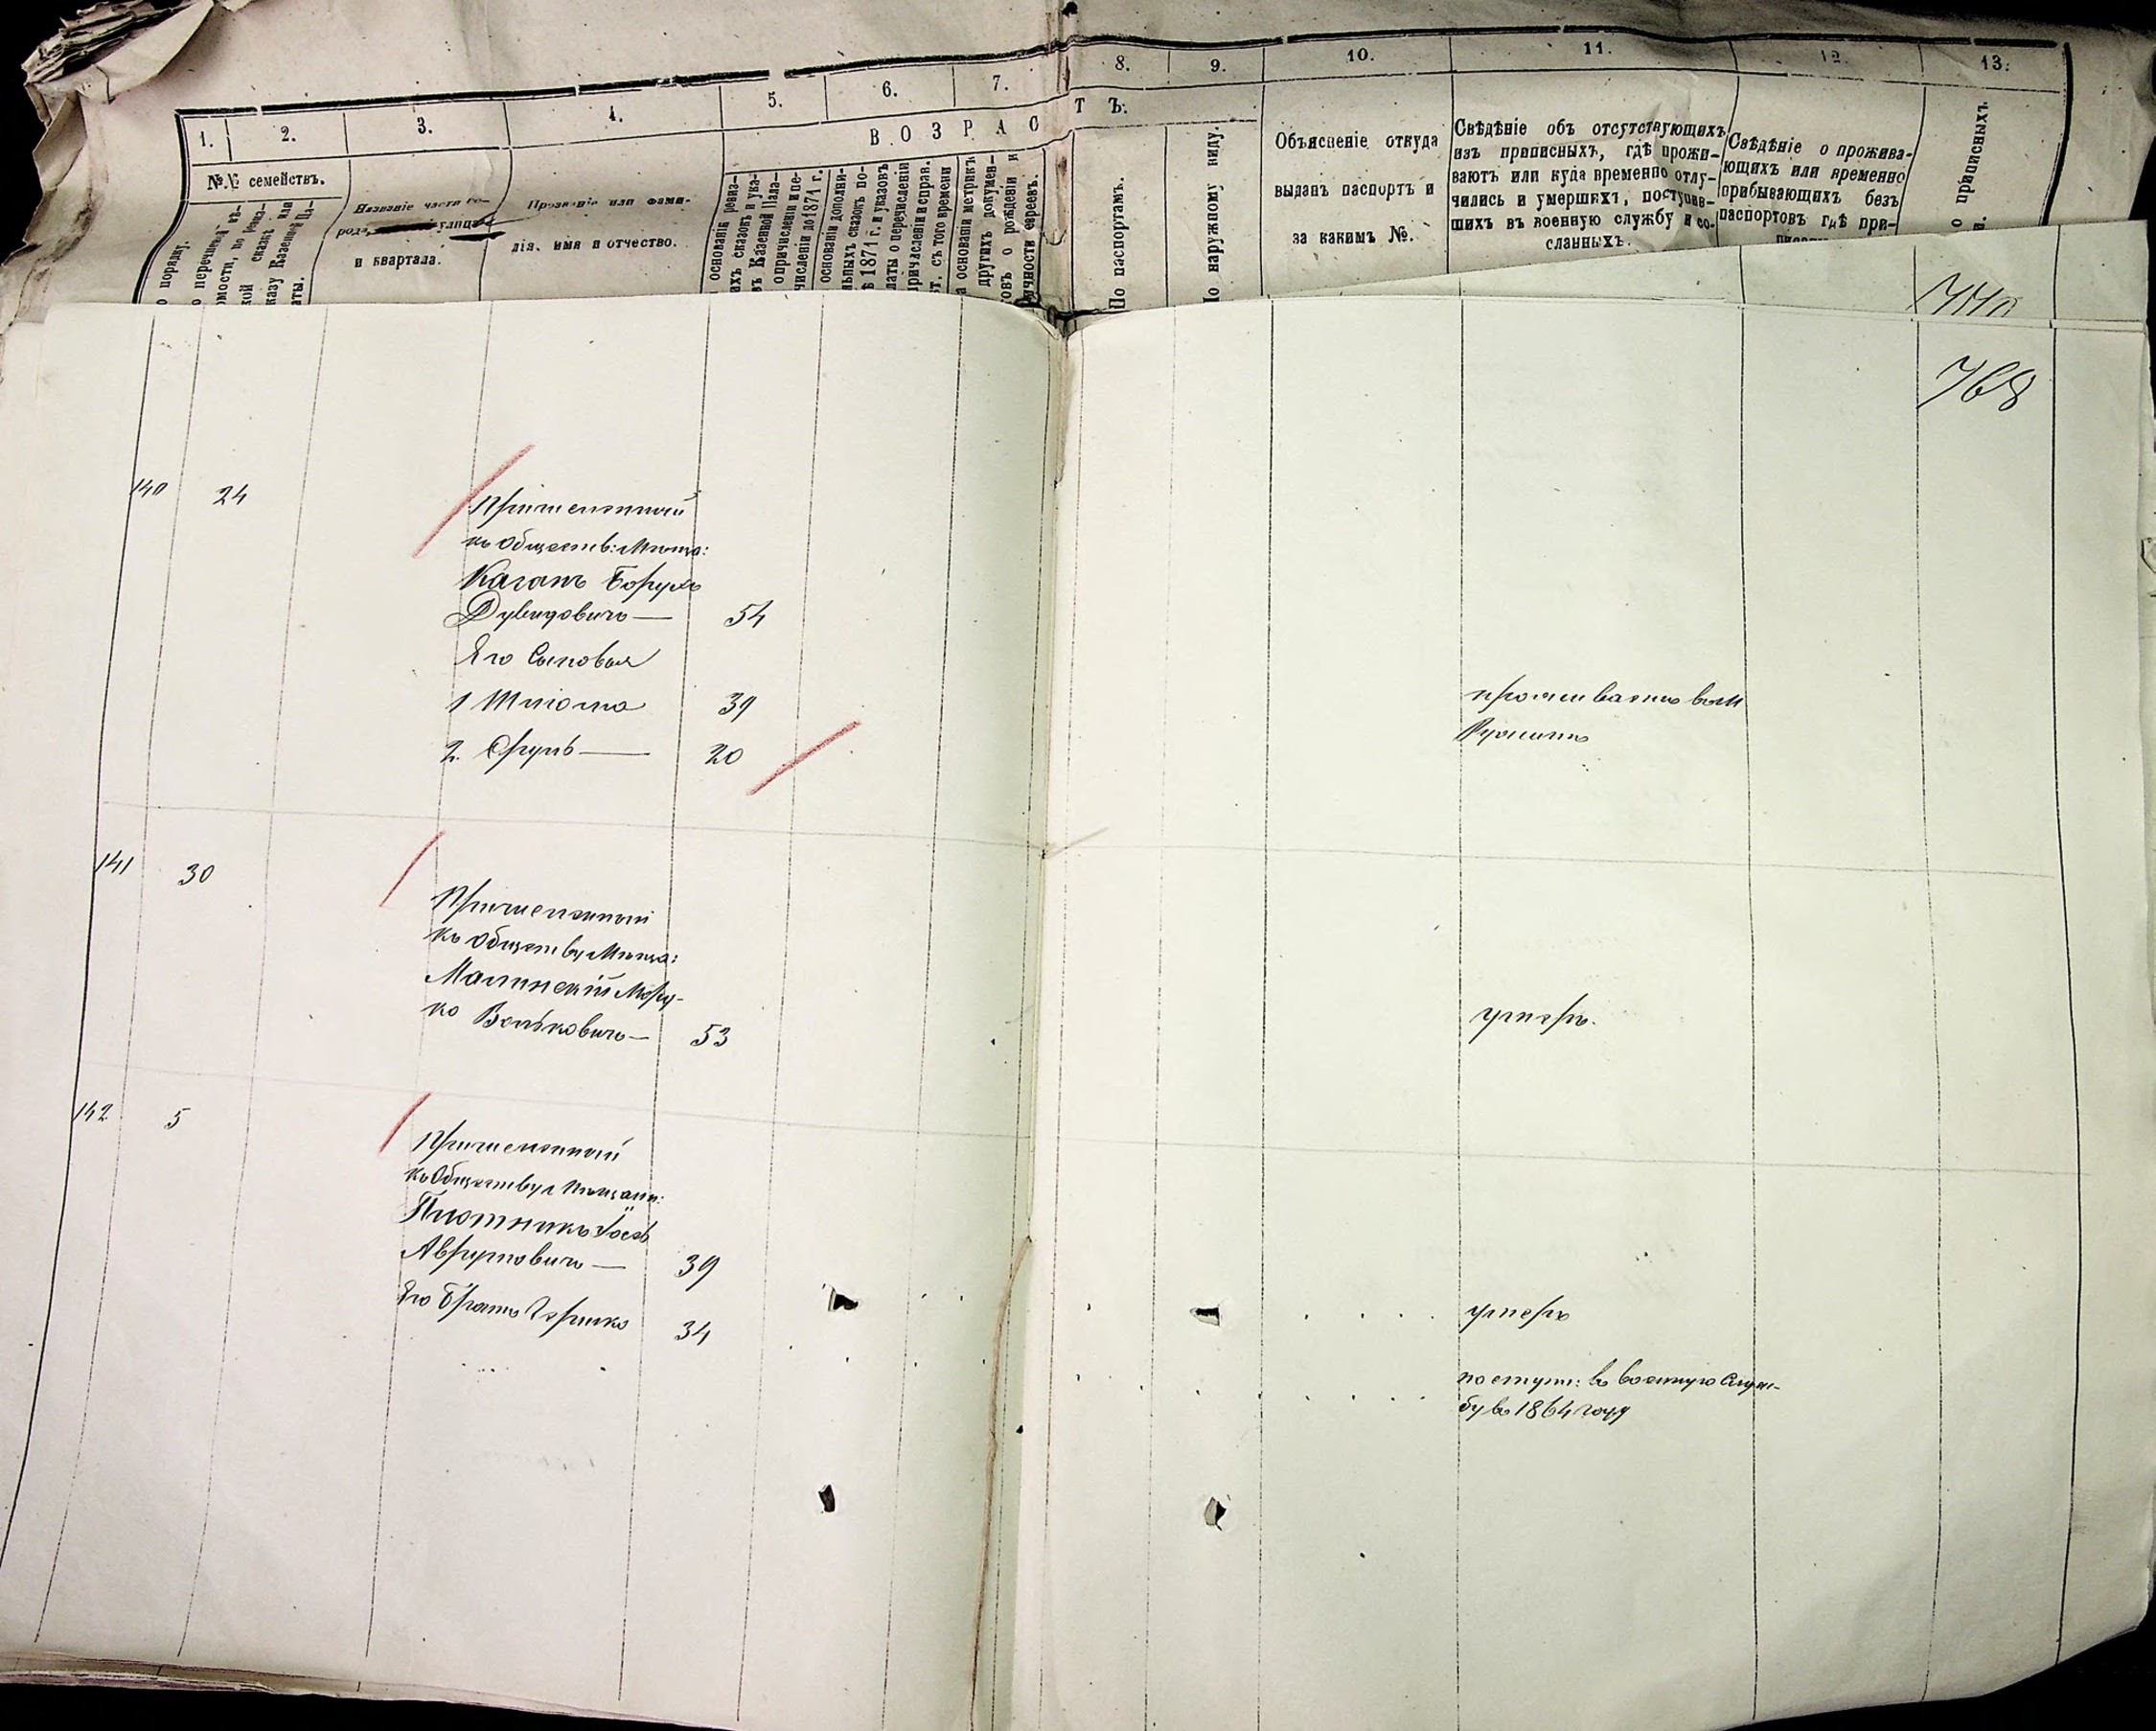 1.
2.
3.
4.
5.
6.
7.
8.
9.
10.
11.
12.
13.
В О З Р А С
Т Ъ.
№.№ семействъ.
о порядку.
о перечневой вѣ-
омости, по ревиз-
кой сказкѣ или
казу Казенной Па-
аты.
Названіе части го-
рода, улицы
и квартала.
Прозваніе или фами-
лія, имя и отчество.
основаніи ревиз-
ихъ сказокъ и ука-
въ Казенной Пала-
о причисленіи и пе-
численіи до 1871 г.
основаніи дополни-
льныхъ сказокъ по-
ѣ 1871 г. и указовъ
латы о перечисленіи
причисленіи и справ.
ст. съ того времени
а основаніи метрикъ
другихъ докумен-
овъ о рожденіи и
ичности евреевъ.
По паспортамъ.
о наружному виду.
Объясненіе откуда
выданъ паспортъ и
за какимъ №.
Свѣдѣніе объ отсутствующихъ
изъ приписныхъ, гдѣ прожи-
ваютъ или куда временно отлу-
чились и умершихъ, поступив-
шихъ въ военную службу и со-
сланныхъ.
Свѣдѣніе о прожива-
ющихъ или временно
прибывающихъ безъ
паспортовъ гдѣ при-
о приписныхъ.
768
140
24
Причисленный
къ обществ: Мѣща:
Каганъ Борухъ
Дувидовичъ — 54
Его Сыновья
1 Шліома 39
2. Срулъ — 20
проживаетъ въ м
Ружинѣ
141
30
Причисленный
къ обществу Мѣща:
Малинскій Морд-
ко Вольковичъ — 53
умеръ.
142
5
Причисленный
къ Обществу Мѣщан:
Плотникъ Іосъ
Аврумовичъ — 39
умеръ
Его Братъ Гершко 34
поступи: въ военную служ-
бу въ 1864 году